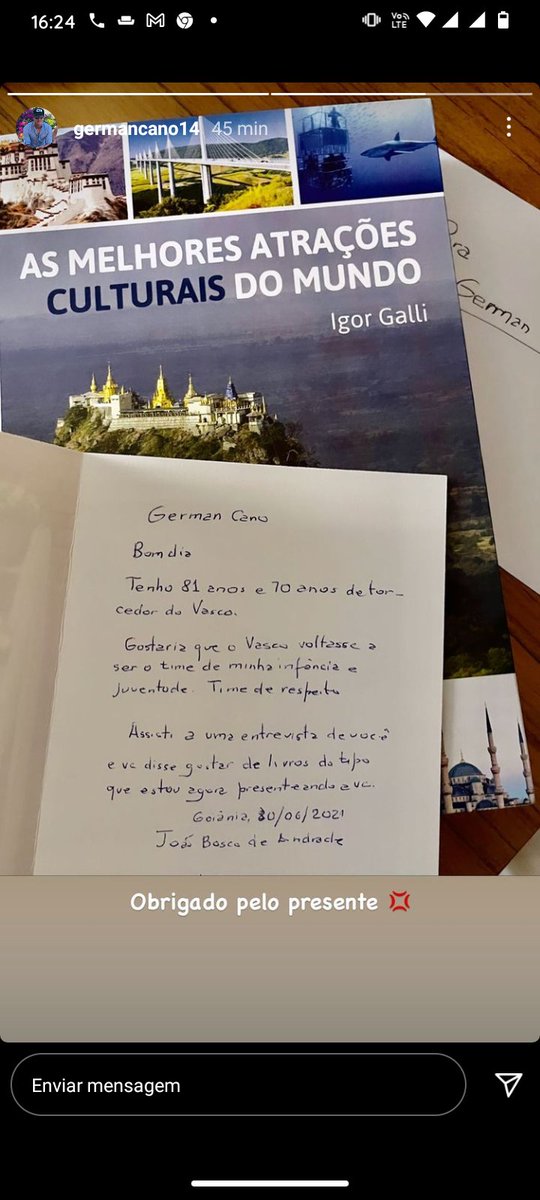 16:24
Vo
LTE
germancano14 45 min
AS MELHORES ATRAÇÕES
CULTURAIS DO MUNDO
Igor Galli
Pra
German
German Cano
Bom dia
Tenho 81 anos e 70 anos de tor_
cedor do Vasco.
Gostaria que o Vasco voltasse a
ser o time de minha infância e
juventude. Time de respeito
Assisti a uma entrevista de você
e vc disse gostar de livros do tipo
que estou agora presenteando a vc.
Goiânia, 30/06/2021
João Bosco de Andrade
Obrigado pelo presente 💢
Enviar mensagem